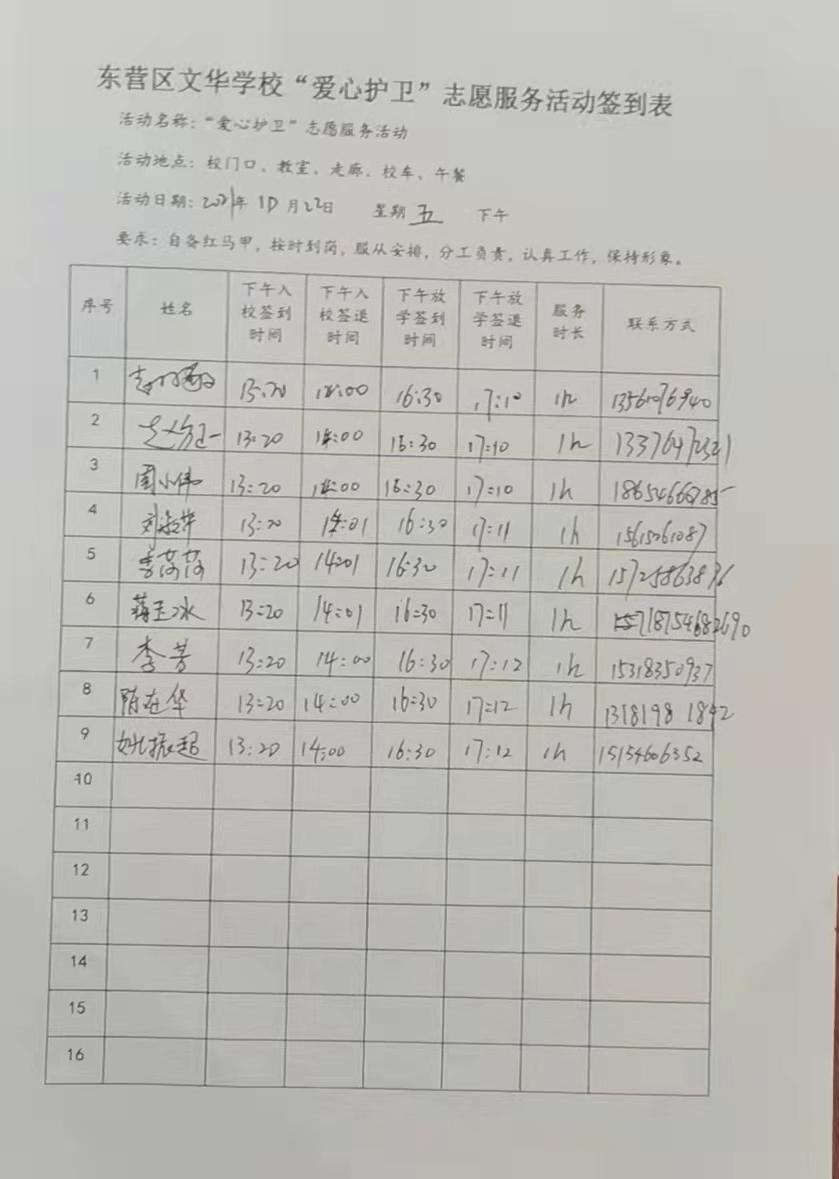 东营区文华学校“爱心护卫”志愿服务活动签到表
活动名称：“爱心护卫”志愿服务活动
活动地点：校门口、教室、走廊、校车、午餐
活动日期：2021年 10 月22日 星期 五 下午
要求：自备红马甲，按时到岗，服从安排，分工负责，认真工作，保持形象。
序号 姓名 下午入校签到时间 下午入校签退时间 下午放学签到时间 下午放学签退时间 服务时长 联系方式
1 13:20 14:00 16:30 17:10 1h
2 13:20 14:00 16:30 17:10 1h
3 周小伟 13:20 14:00 16:30 17:10 1h
4 13:20 14:01 16:30 17:11 1h 15615261087
5 13:20 1401 16:30 17:11 1h 15725863876
6 13:20 14:01 16:30 17:11 1h
7 李芳 13:20 14:00 16:30 17:12 1h 15318350937
8 陈在华 13:20 14:00 16:30 17:12 1h 1318198 1842
9 姚振超 13:20 14:00 16:30 17:12 1h 15154606352
10
11
12
13
14
15
16